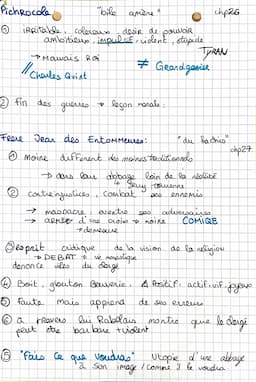 Pichrocole "bile amère" chp26
① irritable, coléreux, désir de pouvoir
ambitieux, impulsif, violent, stupide
TYRAN
→ Mauvais Roi
≠ Grandgousier
// Charles Quint
② fin des guerres → leçon morale.
Frere Jean des Entommeures: "du bachus"
chp27
① Moine différent des moines traditionnels
→ dans leur abbaye loin de la réalité
↳ Seuly tourenne
② contre injustices, combat ses ennemis
→ massacre, éventre ses adversaires
→ armé d'une croix → noire COMIQUE
→ demeure
③ esprit critique de la vision de la religion
→ DEBAT → vie monastique
dénonce rôles du clergé
④ Boit, glouton Beuverie, ⚠ Positif: actif, vif, joyeux
⑤ fauts mais apprend de ses erreurs
⑥ a travers lui Rabelais montre que le clergé
peut être barbare + violent
⑤ "Fais Ce que Voudras" Utopie d'une abbaye
à son image / comme il le voudra